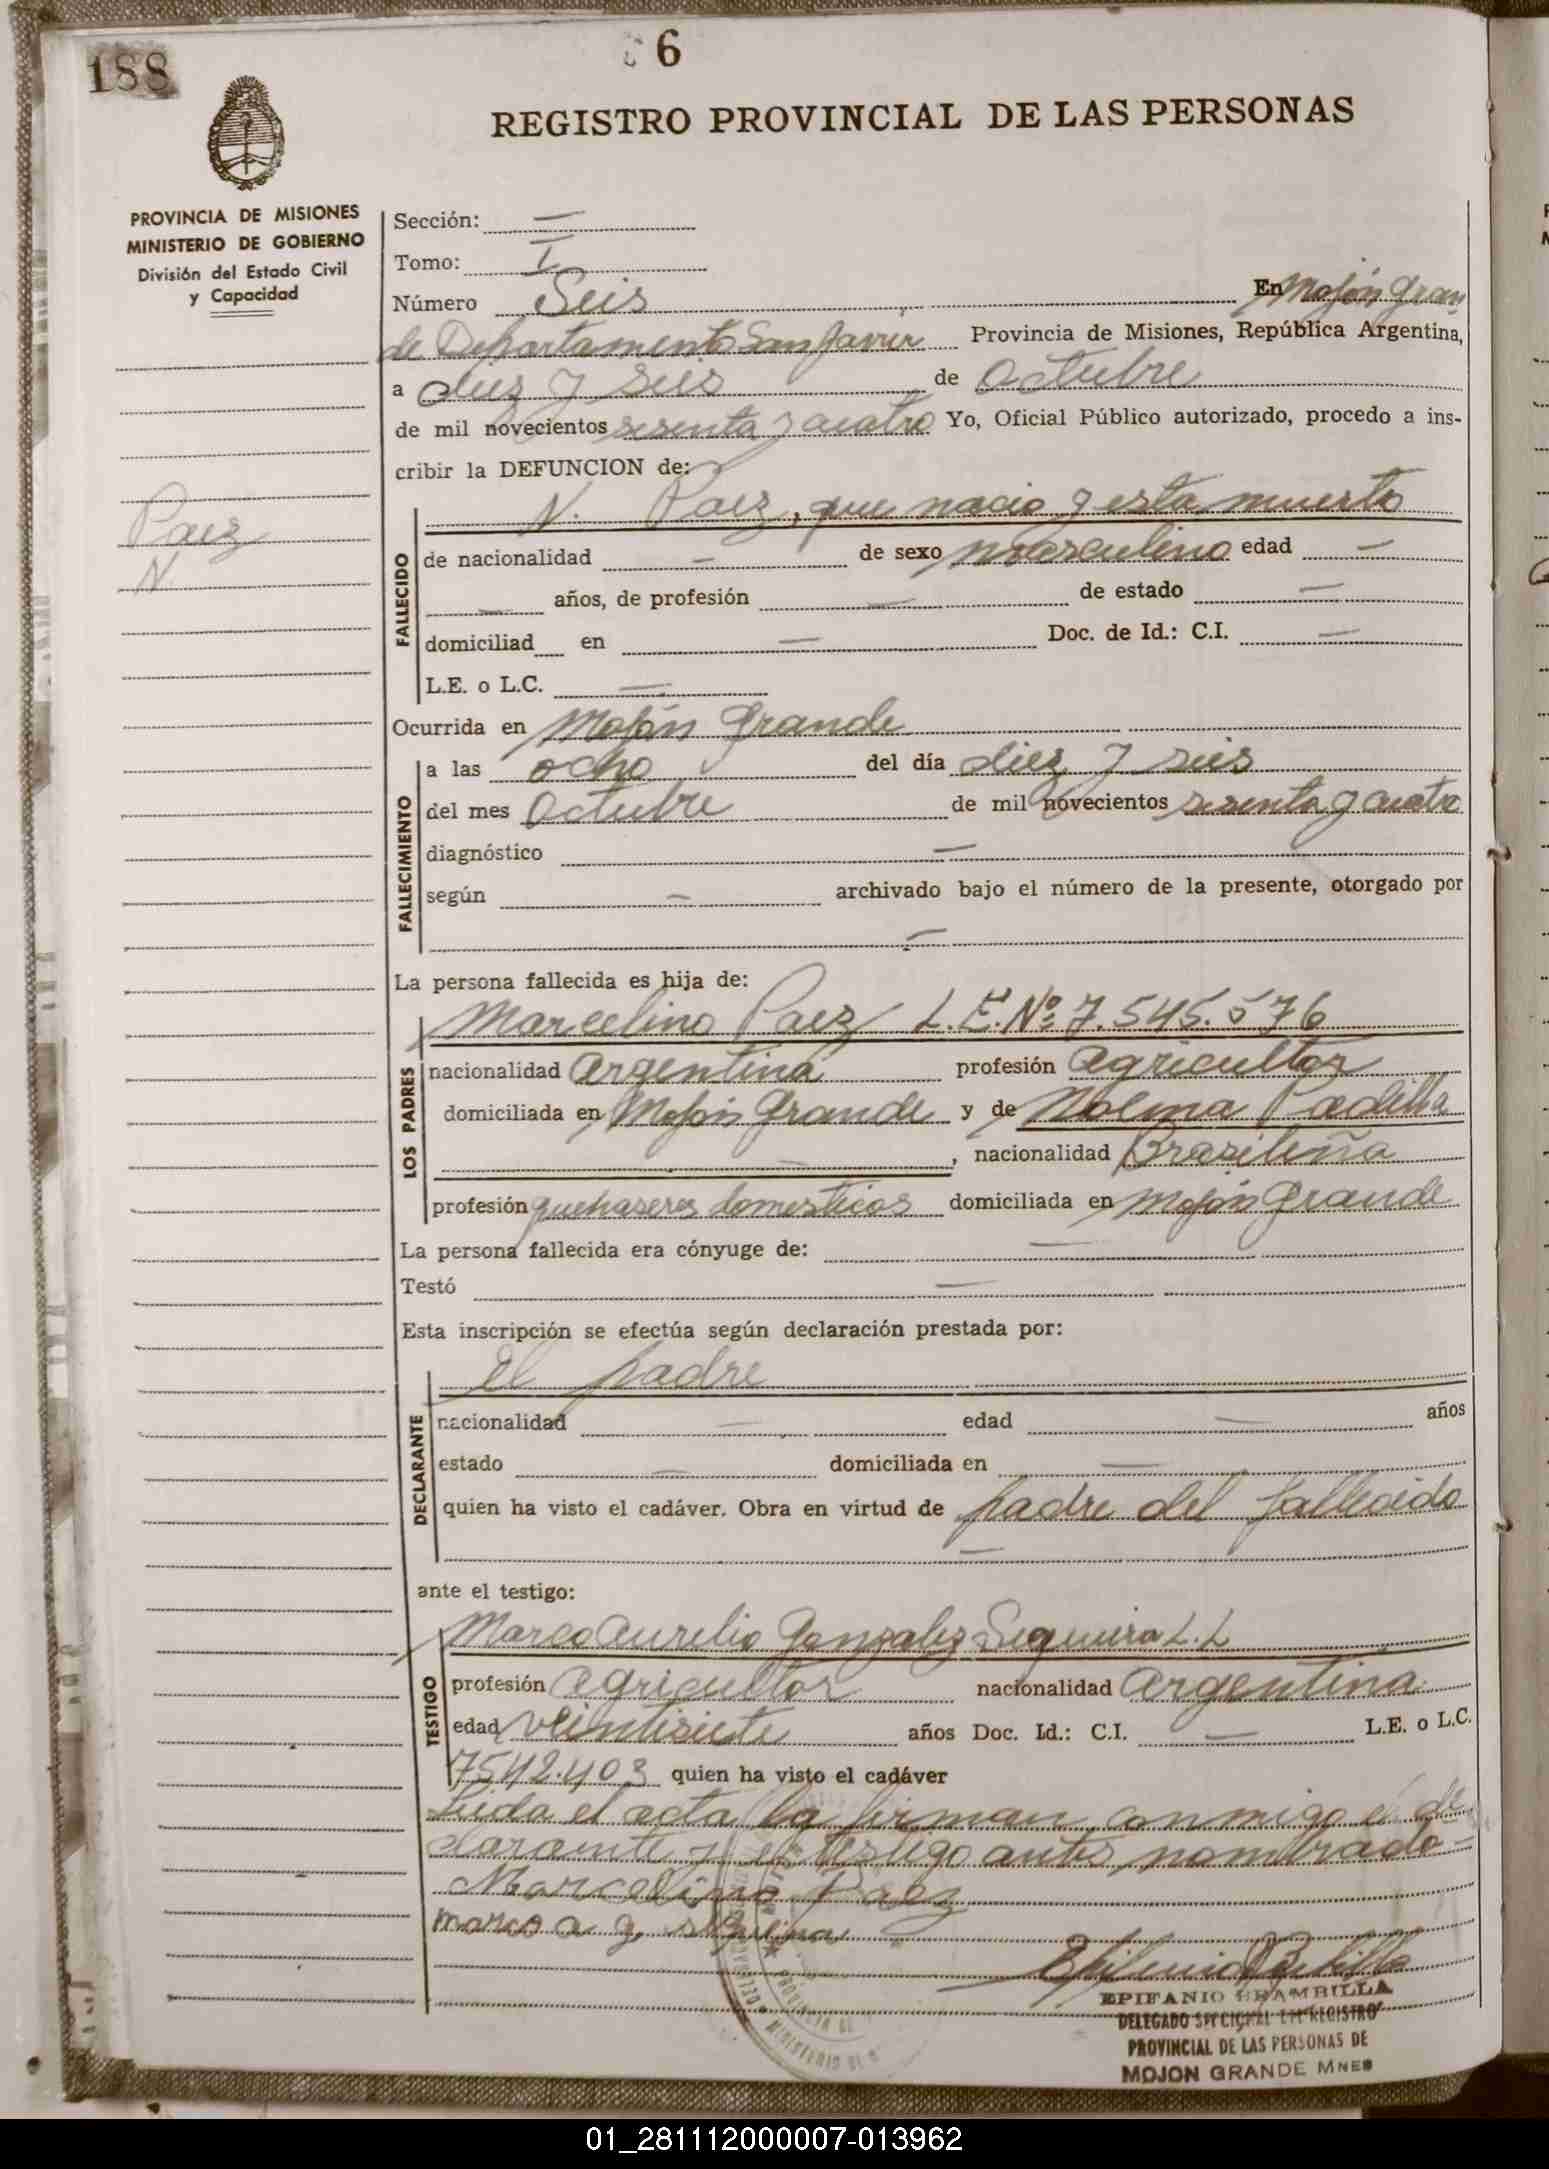 188
6
REGISTRO PROVINCIAL DE LAS PERSONAS
PROVINCIA DE MISIONES
MINISTERIO DE GOBIERNO
División del Estado Civil
y Capacidad
Paez
N.
Sección: —
Tomo: I
Número Seis En Mojón Gran
de Departamento San Javier Provincia de Misiones, República Argentina,
a diez y seis de Octubre
de mil novecientos sesenta y cuatro Yo, Oficial Público autorizado, procedo a ins-
cribir la DEFUNCION de:
N. Paez, que nacio y esta muerto
FALLECIDO
de nacionalidad — de sexo masculino edad —
— años, de profesión — de estado —
domiciliad en — Doc. de Id.: C.I. —
L.E. o L.C. —
Ocurrida en Mojón Grande
FALLECIMIENTO
a las ocho del día diez y seis
del mes Octubre de mil novecientos sesenta y cuatro
diagnóstico —
según — archivado bajo el número de la presente, otorgado por
—
La persona fallecida es hija de:
Marcelino Paez L.E. Nº 7.545.576
LOS PADRES
nacionalidad Argentina profesión Agricultor
domiciliada en Mojón Grande y de Noema Padilla
—, nacionalidad Brasileña
profesión quehaseres domesticos domiciliada en Mojón Grande
La persona fallecida era cónyuge de: —
Testó —
Esta inscripción se efectúa según declaración prestada por:
El padre
DECLARANTE
nacionalidad — edad — años
estado — domiciliada en —
quien ha visto el cadáver. Obra en virtud de padre del fallecido
—
ante el testigo:
Marco Aurelio Gonzalez Sequeira L.L
TESTIGO
profesión Agricultor nacionalidad Argentina
edad veintisiete años Doc. Id.: C.I. — L.E. o L.C.
7542.403 quien ha visto el cadáver
Leida el acta la firman conmigo el de
clarante y el testigo antes nombrado =
Marcelino Paez
marco a g sequeira
EPIFANIO BRAMBILLA
DELEGADO SECCIONAL DEL REGISTRO
PROVINCIAL DE LAS PERSONAS DE
MOJON GRANDE MNES
PROVINCIA DE
MINISTERIO DE G
01_281112000007-013962